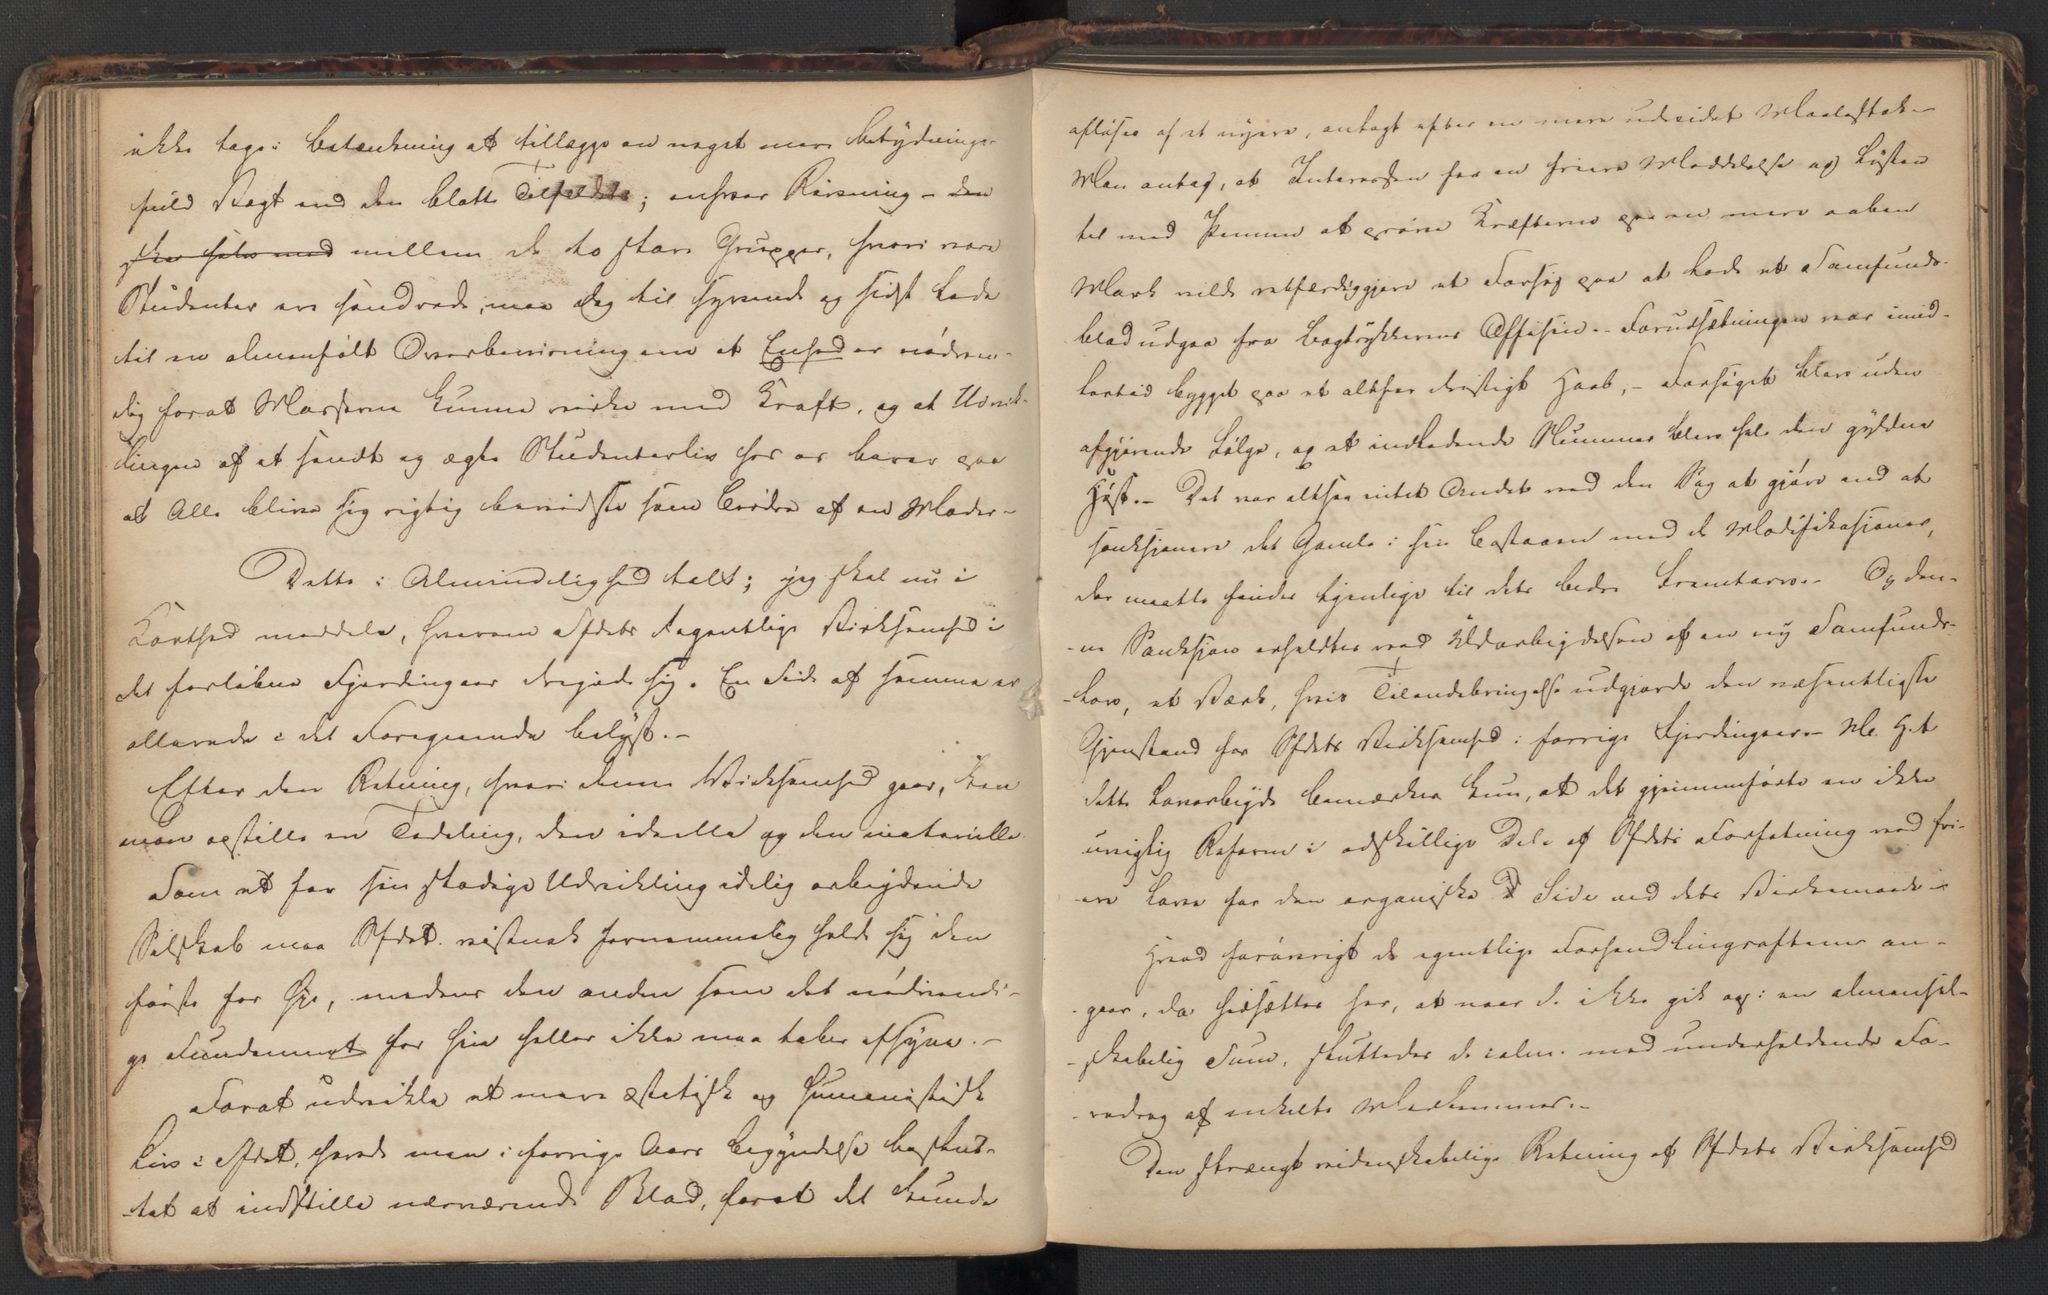 ikke tage i Betænkning at tillægge en noget mere betydnings-
fuld Vægt end den blotte Tilfældets; enhver Rivning – den
ske selv med mellem de to store Grupper, hvori vore
Studenter ere søndrede, maa dog til syvende og sidst lede
til en almenfølt Overbevisning om at Enhed er nødven-
dig forat Masserne kunne virke med Kraft, og at Udvik-
lingen af et sundt og ægte Studenterliv her er beror paa
at Alle blive sig rigtig bevidste som Brødre af en Moder –
Dette i Almindelighed talt; jeg skal nu i
Korthed meddele, hvorom Sfdets egentlige Virksomhed i
det forløbne Fjerdingaar dreiede sig. En Side af samme er
allerede i det Foregaaende belyst. –
Efter den Retning, hvori denne Virksomhed gaar, kan
man opstille en Todeling, den ideelle og den materielle.
Som et for sin stadige Udvikling idelig arbeydende
Selskab maa Sfdet vistnok fornemmelig holde sig den
første for Øje, medens den anden som det nødvendi-
ge Fundament for hin heller ikke maa tabes afsyne. –
Forat udvikle et mere æstetisk og humanistisk
Liv i Sfdet, havde man i forrige Aars Begyndelse beslut-
tet at indstille nærværende Blad, forat det kunde
afløses af et nyere, anlagt efter en mere udvidet Maalestok –
Man antog, at Interessen for en friere Meddelelse og Lysten
til med Pennen at prøve Kræfterne paa en mere aaben
Mark vilde retfærdiggjøre et Forsøg paa at lade et Samfunds-
blad udgaa fra Bogtrykkerens Offisin. – Forudsætningen var imid-
lertid bygget paa et altfor dristigt Haab, – Forsøget blev uden
afgjørende Følge, og et indledende Nummer blev hele den gyldne
Høst. – Det var altsaa intet Andet ved den Sag at gjøre end at
sanksjonere det Gamle i sin Bestaaen med de Modifikasjoner,
der maatte findes tjenlige til dets bedre Fremtarv. – Og den-
ne Sanksjon erholdtes ved Udarbeydelsen af en ny Samfunds-
lov, et Værk, hvis Tilendebringelse udgjorde den væsentligste
Gjenstand for Sfdets Virksomhed i forrige Fjerdingaar – M. H. t.
dette Lovarbeyde bemærkes kun, at det gjennemførte en ikke
uvigtig Reform i adskillige Dele af Sfdets Forfatning ved fri-
ere Love for den organiske Side ved dets Virkemaade –
Hvad forøvrigt de egentlige Forhandlingsaftener an-
gaar, da hidsættes her, at naar de ikke gik op i en almensel-
skabelig Summ, sluttedes de i alm. med underholdende Fo-
redrag af enkelte Medlemmer. –
Den strængt videnskabelige Retning af Sfdets Virksomhed